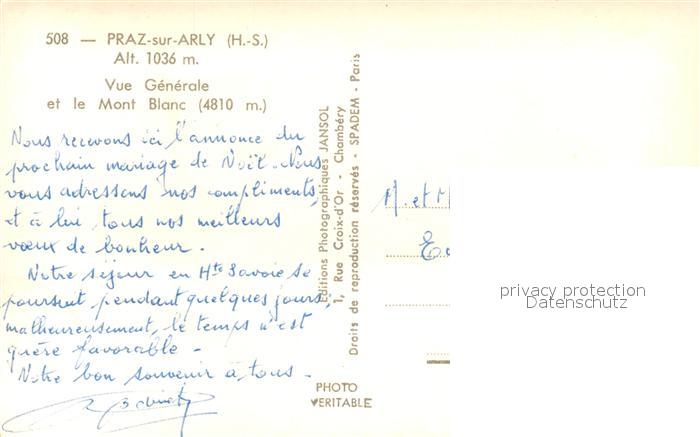 508 — PRAZ-sur-ARLY (H.-S.)
Alt. 1036 m.
Vue Générale
et le Mont Blanc (4810 m.)
Nous recevons ici l'annonce du
prochain mariage de Noël. Nous
vous adressons nos compliments,
et à lui, tous nos meilleurs
vœux de bonheur.
Notre séjour en Hte Savoie se
poursuit pendant quelques jours,
malheureusement, le temps n'est
guère favorable -
Notre bon souvenir à tous -
Editions Photographiques JANSOL
1, Rue Croix-d'Or - Chambéry
Droits de reproduction réservés - SPADEM - Paris
PHOTO
VERITABLE
M. et M
privacy protection
Datenschutz